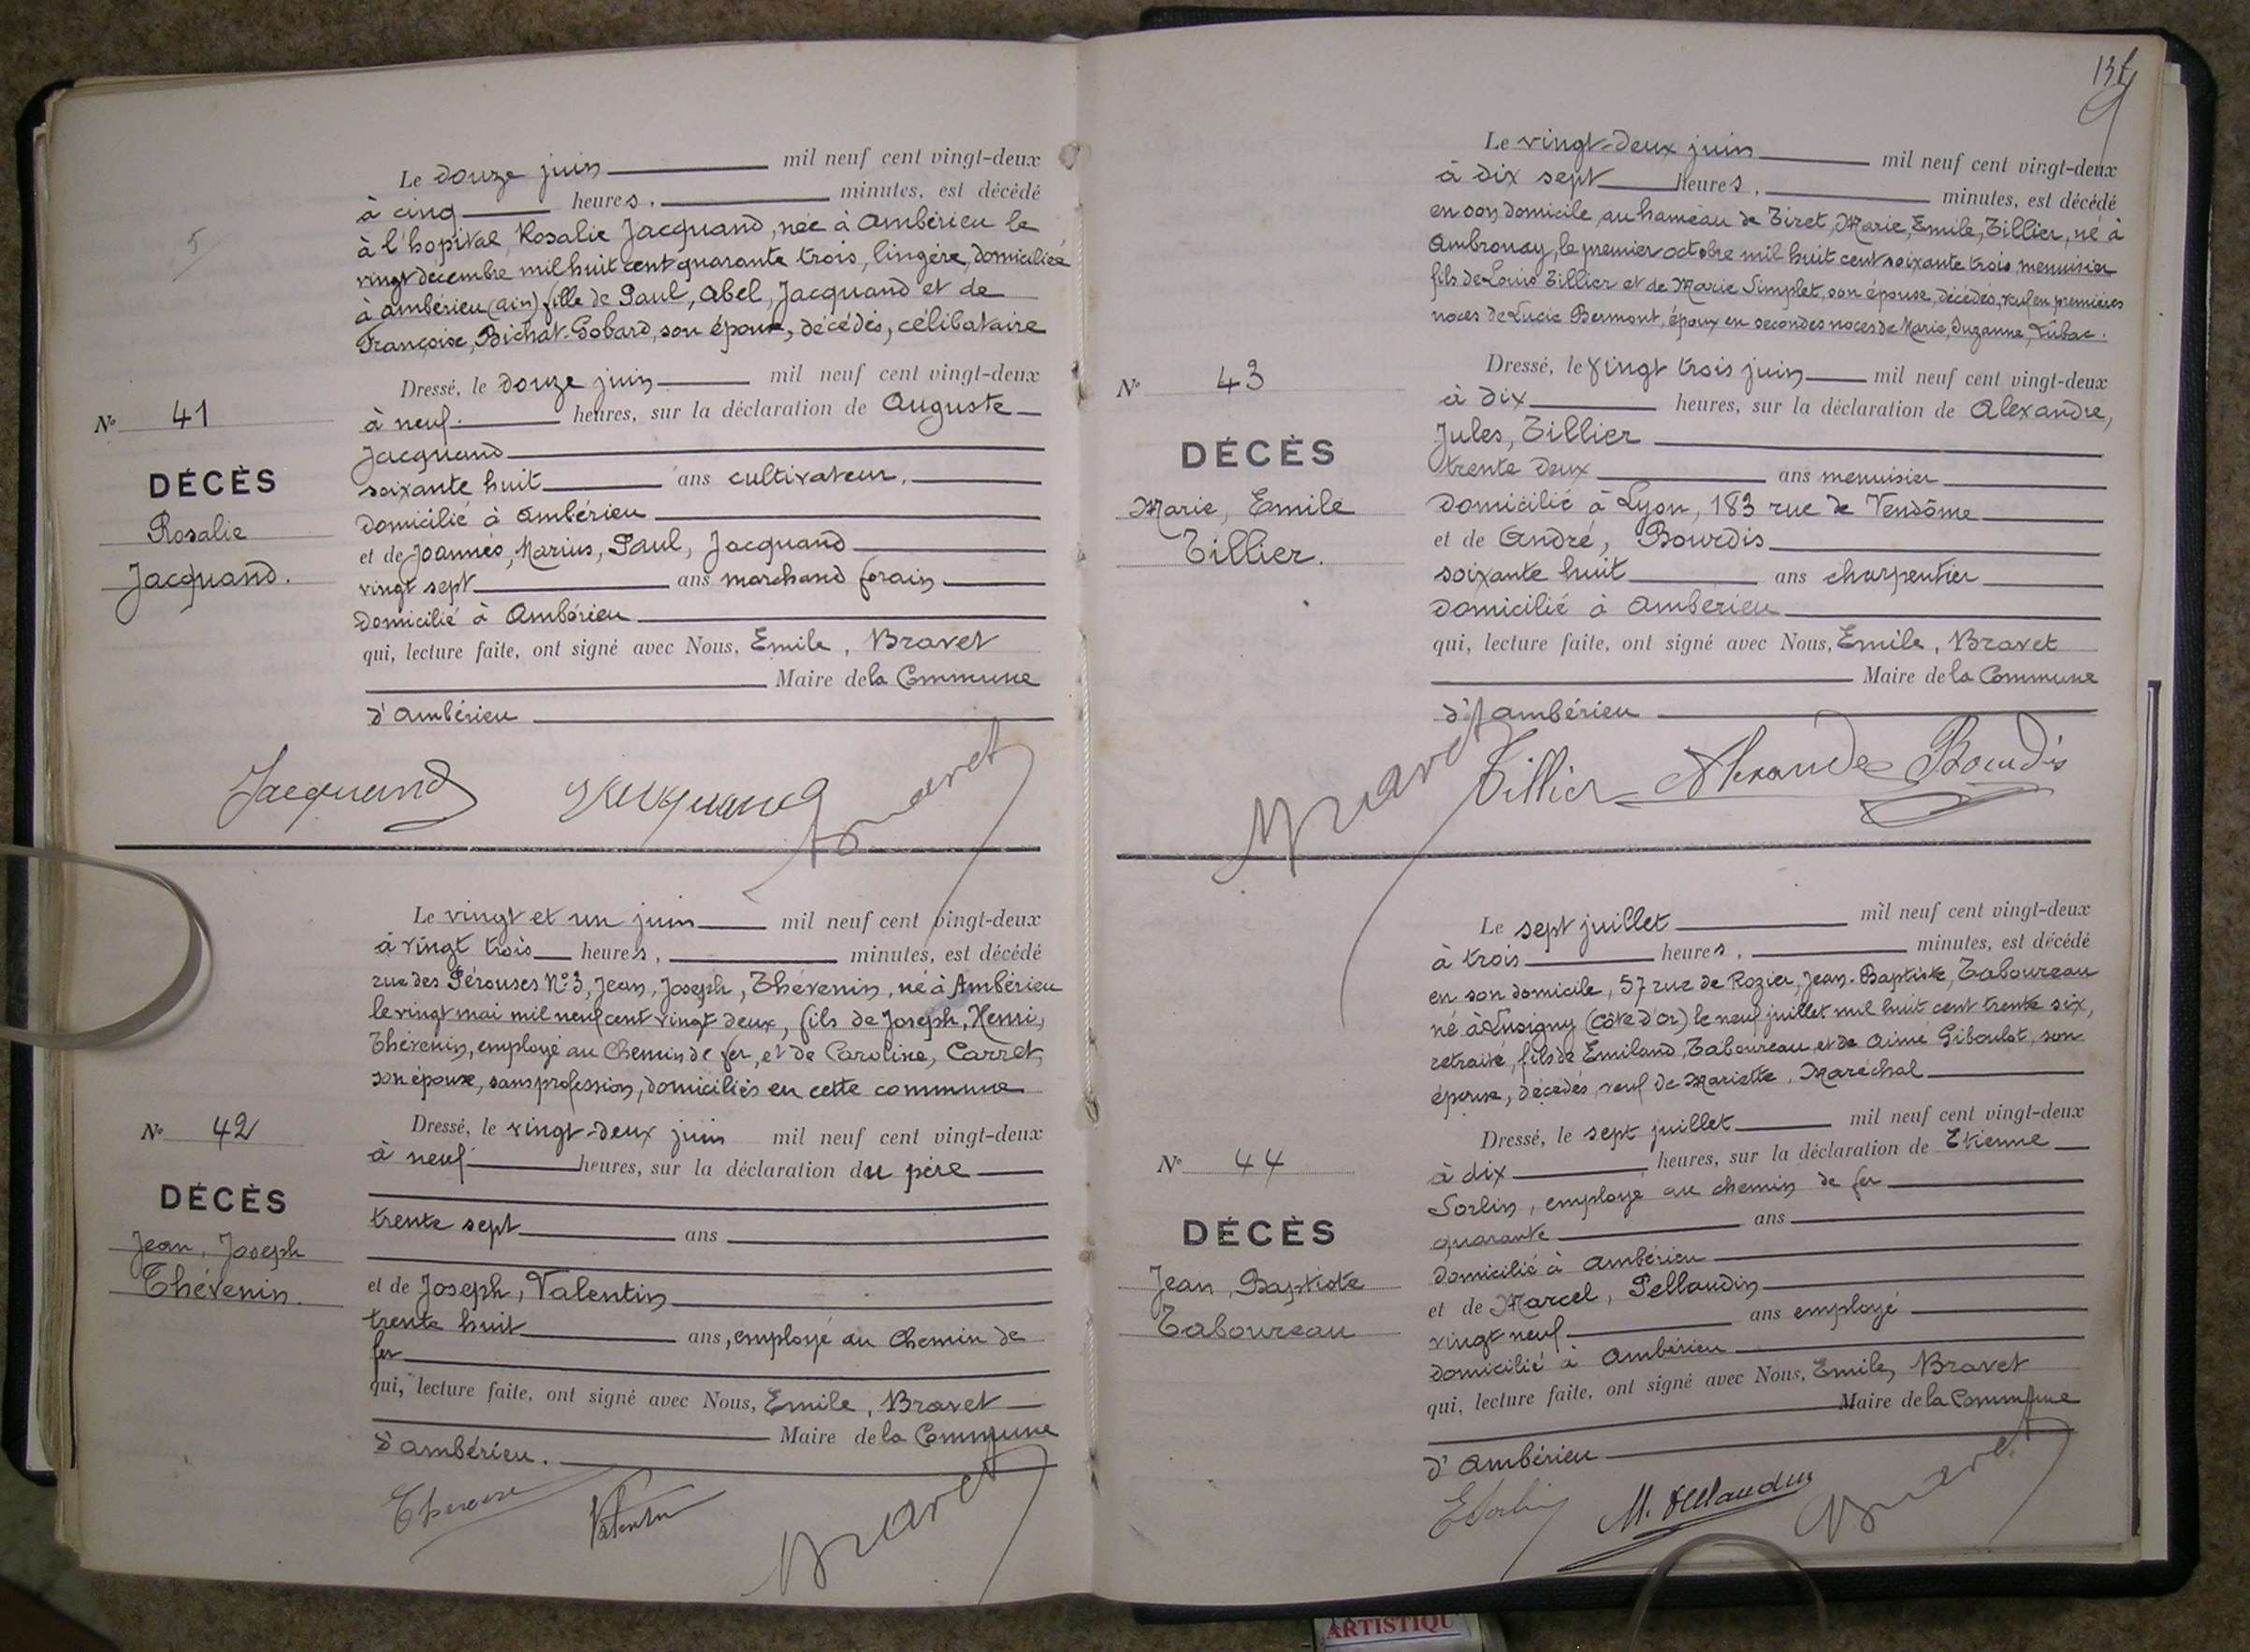 5
Le douze juin mil neuf cent vingt-deux
à cinq heures, minutes, est décédé
à l'hopital, Rosalie Jacquand, née à Ambérieu le
vingt décembre mil huit cent quarante trois, lingère, domiciliée
à Ambérieu (ain) fille de Paul, Abel, Jacquand et de
Françoise, Bichat-Gobard, son épouse, décédés, célibataire
Dressé, le douze juin mil neuf cent vingt-deux
à neuf heures, sur la déclaration de Auguste
Jacquand
soixante huit ans cultivateur,
domicilié à Ambérieu
et de Joannès, Marius, Paul, Jacquand
vingt sept ans marchand forain
domicilié à Ambérieu
qui, lecture faite, ont signé avec Nous, Emile, Bravet
Maire de la Commune
d'Ambérieu
N° 41
DÉCÈS
Rosalie
Jacquand.
Jacquand Jacquand Bravet
Le vingt et un juin mil neuf cent vingt-deux
à vingt trois heures, minutes, est décédé
rue des Pérouses N° 3, Jean, Joseph, Thévenin, né à Ambérieu
le vingt mai mil neuf cent vingt deux, fils de Joseph, Henri,
Thévenin, employé au Chemin de fer, et de Caroline, Carret,
son épouse, sans profession, domiciliés en cette commune
Dressé, le vingt-deux juin mil neuf cent vingt-deux
à neuf heures, sur la déclaration du père
trente sept ans
et de Joseph, Valentin
trente huit ans, employé au Chemin de
fer
qui, lecture faite, ont signé avec Nous, Emile, Bravet
Maire de la Commune
d'Ambérieu.
N° 42
DÉCÈS
Jean, Joseph
Thévenin.
Thévenin Valentin Bravet
Le vingt-deux juin mil neuf cent vingt-deux
à dix sept heures, minutes, est décédé
en son domicile, au hameau de Tiret, Marie, Emile, Tillier, né à
Ambronay, le premier octobre mil huit cent soixante trois, menuisier
fils de Louis Tillier et de Marie Simplet, son épouse, décédés, veuf en premières
noces de Lucie Bermont, époux en secondes noces de Marie, Suzanne, Lubac.
Dressé, le vingt trois juin mil neuf cent vingt-deux
à dix heures, sur la déclaration de Alexandre,
Jules, Tillier
trente deux ans menuisier
domicilié à Lyon, 183 rue de Vendôme
et de André, Bourdis
soixante huit ans charpentier
domicilié à Ambérieu
qui, lecture faite, ont signé avec Nous, Emile, Bravet
Maire de la Commune
d'Ambérieu
N° 43
DÉCÈS
Marie, Emile
Tillier.
Bravet Tillier Alexandre Bourdis
Le sept juillet mil neuf cent vingt-deux
à trois heures, minutes, est décédé
en son domicile, 57 rue de Rozier, Jean-Baptiste, Taboureau
né à Lusigny (Côte d'Or) le neuf juillet mil huit cent trente six,
retraité, fils de Emiland, Taboureau, et de Aimé Giboulot, son
épouse, décédés, veuf de Mariette, Maréchal
Dressé, le sept juillet mil neuf cent vingt-deux
à dix heures, sur la déclaration de Etienne
Sorlin, employé au chemin de fer
quarante ans
domicilié à Ambérieu
et de Marcel, Pellaudin
vingt neuf ans employé
domicilié à Ambérieu
qui, lecture faite, ont signé avec Nous, Emile, Bravet
Maire de la Commune
d'Ambérieu
N° 44
DÉCÈS
Jean, Baptiste
Taboureau
E Sorlin M. Pellaudin Bravet
ARTISTIQU